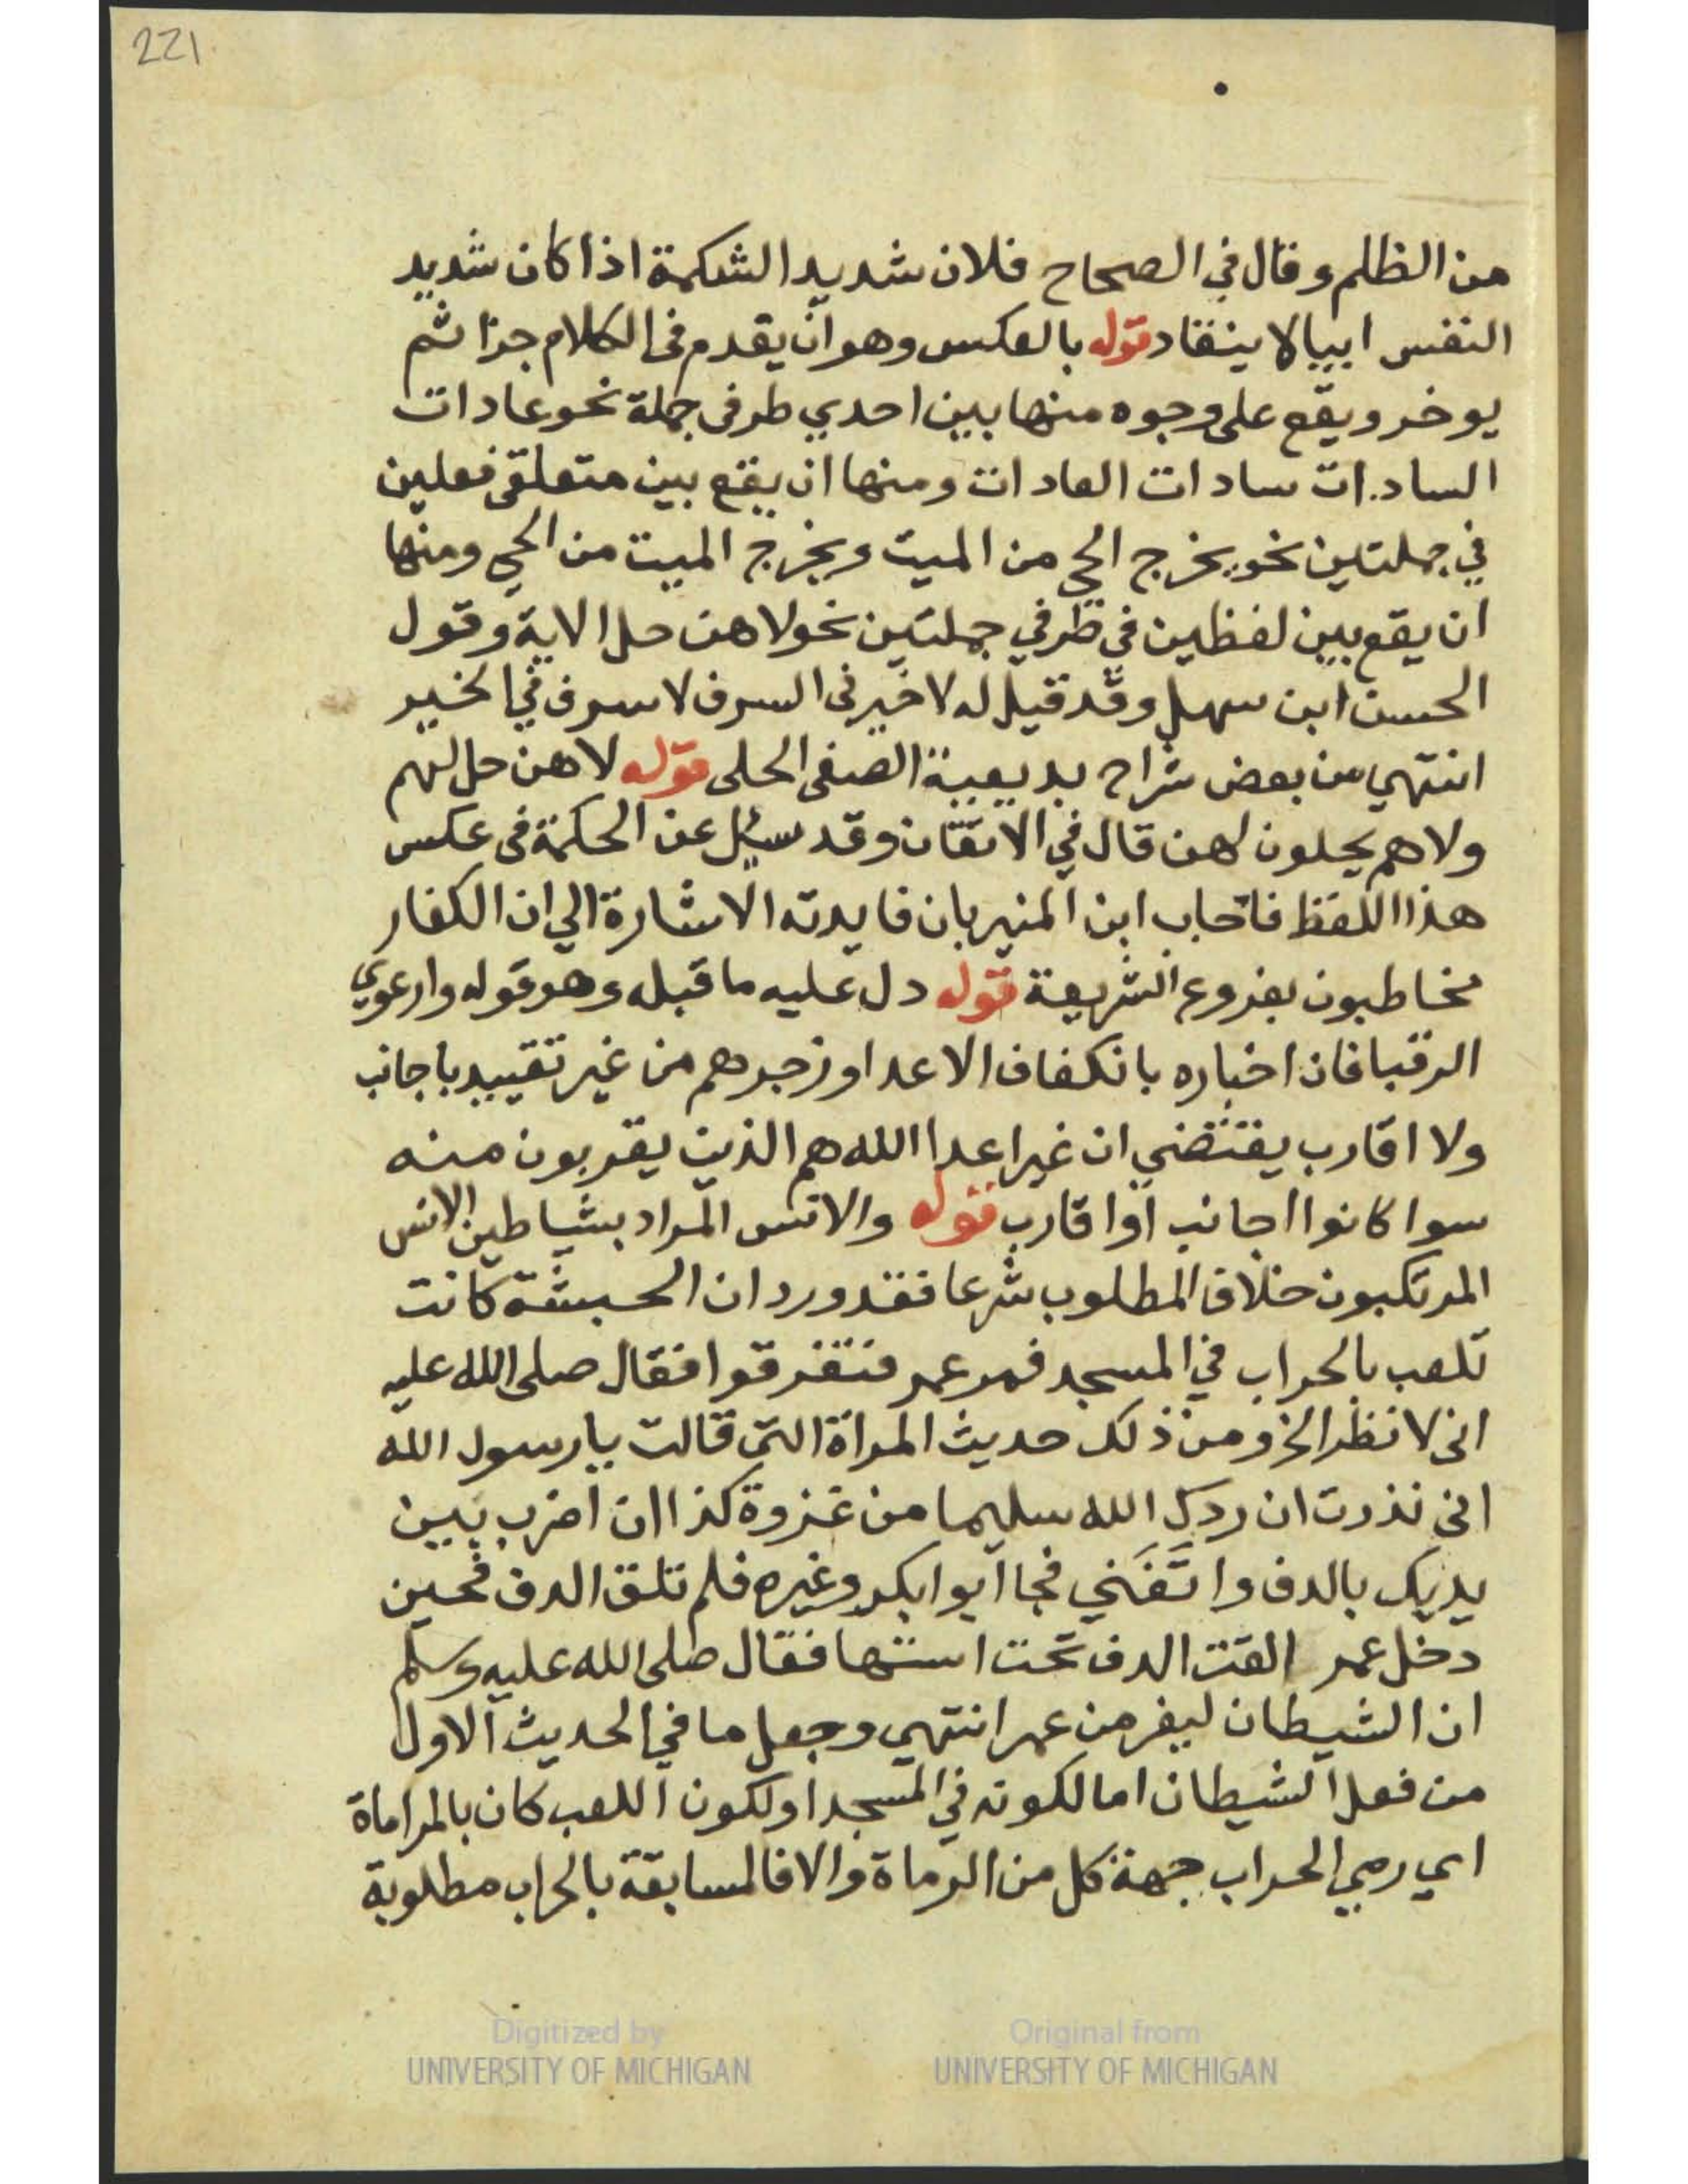 221
من الظلم وقال في الصحاح فلان شديد الشكمة اذا كان شديد
النفس ابيا لا ينقاد قوله بالعكس وهو ان يقدم في الكلام جزا ثم
يوخر ويقع علي وجوه منها بين احدي طرفي جملة نحو عادات
السادات سادات العادات ومنها ان يقع بين متعلقي فعلين
في جملتين نحو يخرج الحي من الميت ويخرج الميت من الحي ومنها
ان يقع بين لفظين في طرفي جملتين نحو لا هن حل الاية وقول
الحسن ابن سهل وقد قيل له لا خير في السرف لا سرف في الخير
انتهي من بعض شراح بديعية الصفي الحلي قوله لا هن حل لهم
ولا هم يحلون لهن قال في الاتقان وقد سيل عن الحكمة في عكس
هذا اللفظ فاجاب ابن المنير بان فايدته الاشارة الي ان الكفار
مخاطبون بفروع الشريعة قوله دل عليه ما قبله وهو قوله وارعوي
الرقبا فان اخباره بانكفاف الاعدا وزجرهم من غير تقييد باجانب
ولا اقارب يقتضي ان غير اعدا الله هم الذين يقربون منه
سوا كانوا اجانب او اقارب قوله والانس المراد بشياطين الانس
المرتكبون خلاف المطلوب شرعا فقد ورد ان الحبشة كانت
تلعب بالحراب في المسجد فمر عمر فتفرقوا فقال صلي الله عليه
اني لانظر الخ ومن ذلك حديث المراة التي قالت يا رسول الله
اني نذرت ان ردك الله سليما من غزوة كذا ان اضرب بين
يديك بالدف واتَغَني فجا ابوا بكر وغيره فلم تلق الدف فحين
دخل عمر القت الدف تحت استها فقال صلي الله عليه وسلم
ان الشيطان ليفر من عمر انتهي وجعل ما في الحديث الاول
من فعل الشيطان اما لكونه في المسجد او لكون اللعب كان بالمراماة
اي رمي الحراب جهة كل من الرماة والا فالمسابقة بالحراب مطلوبة
Digitized by
UNIVERSITY OF MICHIGAN
Original from
UNIVERSITY OF MICHIGAN